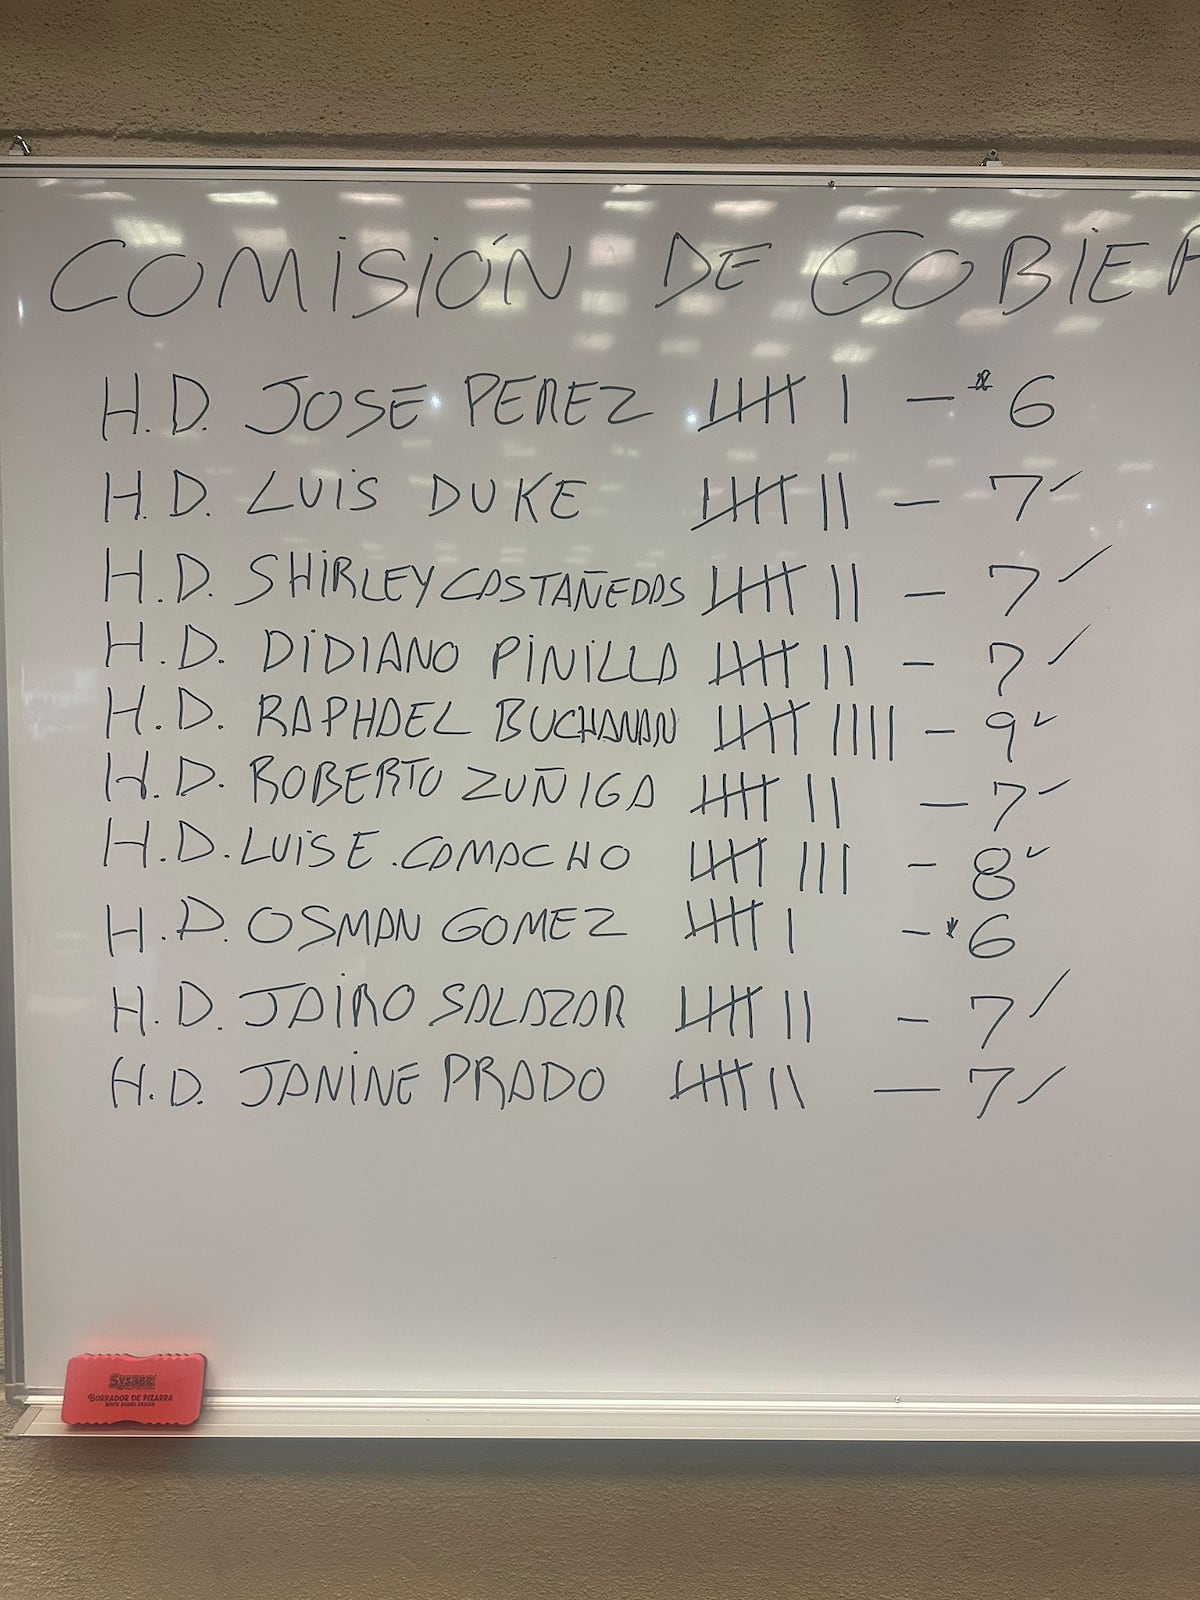 COMISIÓN DE GOBIER
H.D. JOSE PEREZ 𝍸 I — * 6
H.D. LUIS DUKE 𝍸 II — 7 ✓
H.D. SHIRLEY CASTAÑEDAS 𝍸 II — 7 ✓
H.D. DIDIANO PINILLA 𝍸 II — 7 ✓
H.D. RAPHAEL BUCHANAN 𝍸 IIII — 9 ✓
H.D. ROBERTO ZUÑIGA 𝍸 II — 7 ✓
H.D. LUIS E. CAMACHO 𝍸 III — 8 ✓
H.D. OSMAN GOMEZ 𝍸 I — * 6
H.D. JAIRO SALAZAR 𝍸 II — 7 ✓
H.D. JANINE PRADO 𝍸 II — 7 ✓
Sysabe
BORRADOR DE PIZARRA
WHITE BOARD ERASER